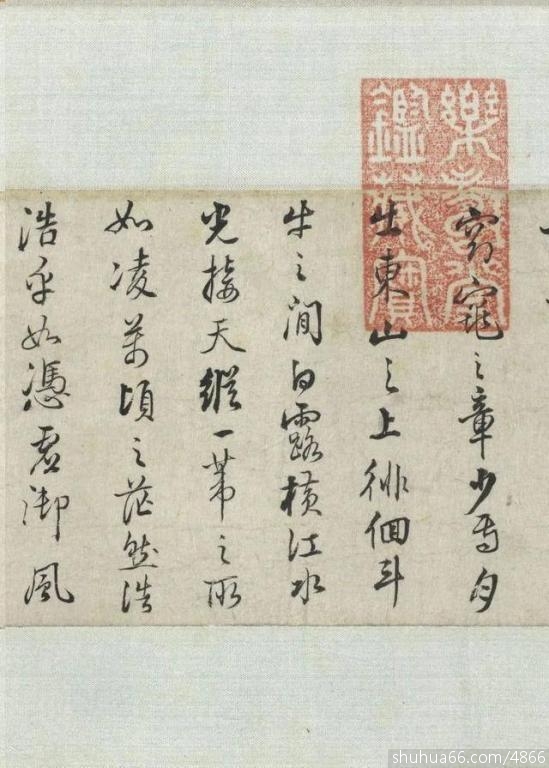 樂壽堂
鑑藏寶
窈窕之章少焉月
出東山之上徘徊斗
牛之間白露橫江水
光接天縱一葦之所
如凌萬頃之茫然浩
浩乎如憑虛御風
shuhua66.com/4866